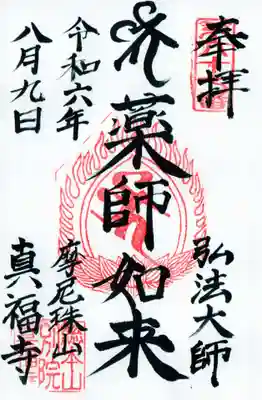 奉拝
弘法大師
薬師如来
令和六年
八月九日
摩尼珠山
真福寺